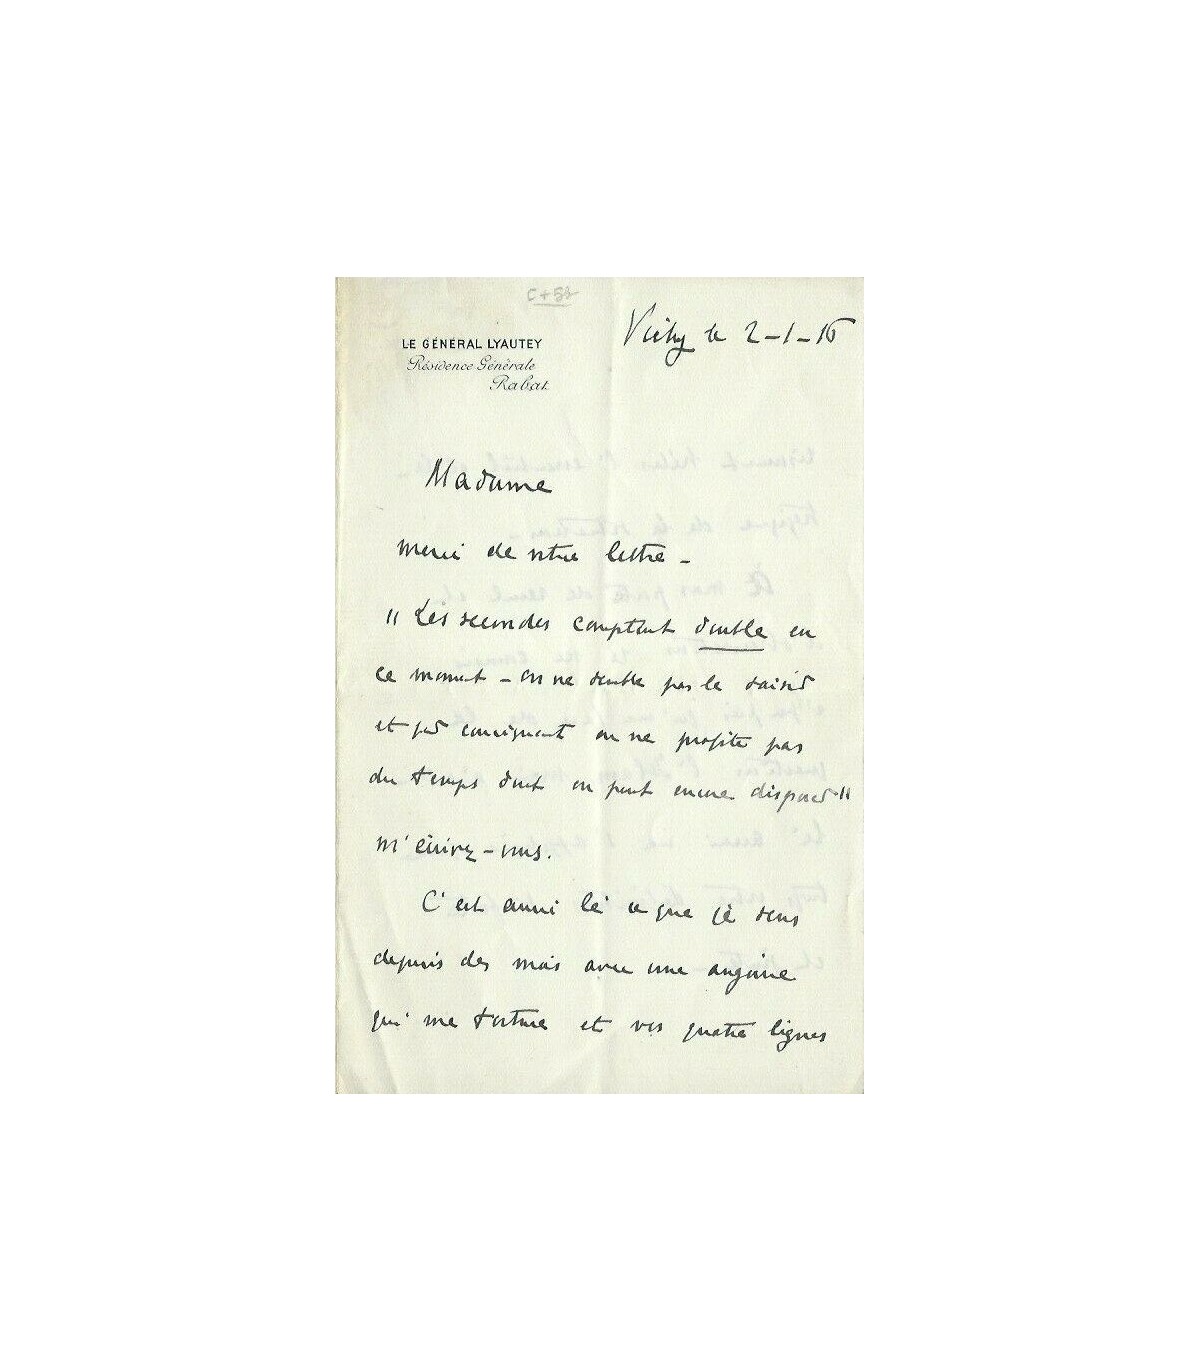 C+58
LE GÉNÉRAL LYAUTEY
Résidence Générale
Rabat
Vichy le 2-1-16
Madame
merci de votre lettre -
"Les secondes comptent double en
ce moment - on ne semble pas le saisir
et par conséquent on ne profite pas
du temps dont on peut encore disposer"
m'écrivez-vous.
C'est aussi là ce que je sens
depuis des mois avec une angoisse
qui me torture et vos quatre lignes